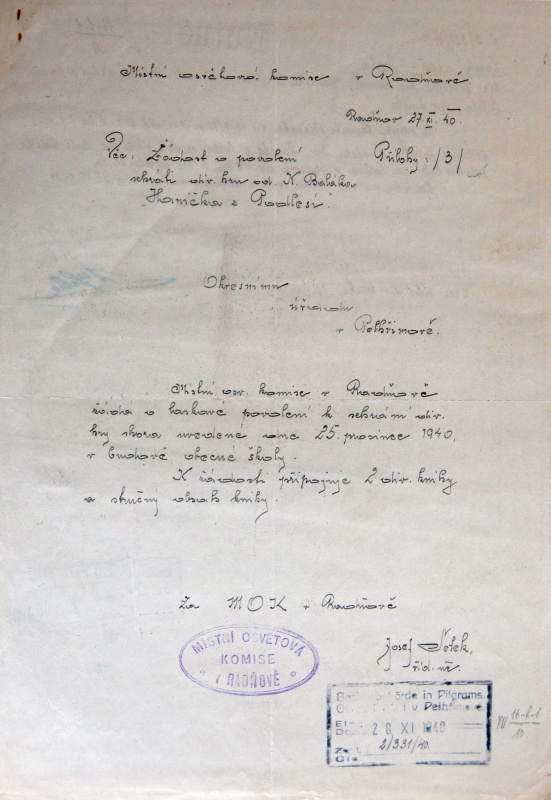 Místní osvětová komise v Radňově
Radňov 27. XI. 40.
Věc: Žádost o povolení
Přílohy: /3/
sehráti div. hru od K. Baláka
"Hanička z Podlesí".
Okresnímu
úřadu
v Pelhřimově.
Místní osv. komise v Radňově
žádá o laskavé povolení k sehrání div.
hry shora uvedené dne 25. prosince 1940,
v budově obecné školy.
K žádosti připojuje 2 div. knihy
a stručný obsah knihy.
Za MOK v Radňově
MÍSTNÍ OSVĚTOVÁ
KOMISE
V RADŇOVĚ
Josef
říd. uč.
in Pilgrams.
v Pelhřimově.
28 XI 1940
2/331/40.
VII 16-b-1
10.